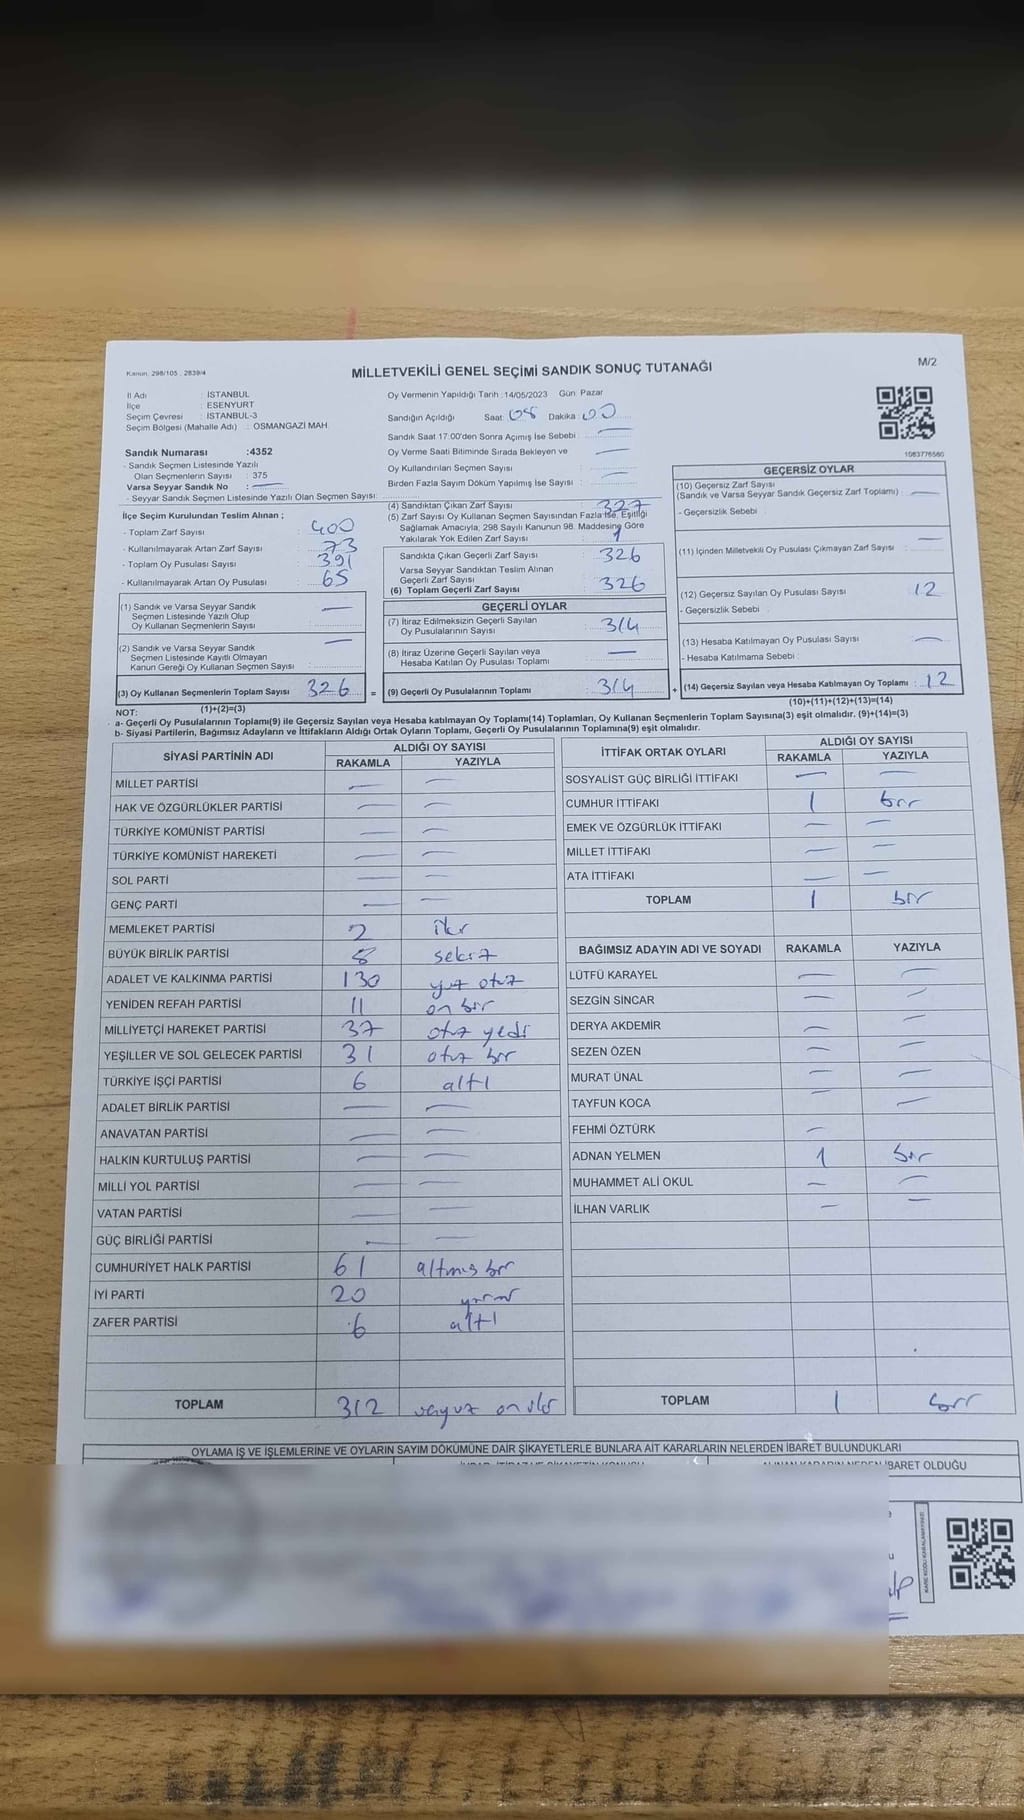 Kanun. 298/105 . 2839/4
MİLLETVEKİLİ GENEL SEÇİMİ SANDIK SONUÇ TUTANAĞI
M/2
İl Adı : İSTANBUL
İlçe : ESENYURT
Seçim Çevresi : İSTANBUL-3
Seçim Bölgesi (Mahalle Adı) : OSMANGAZİ MAH.
Sandık Numarası :4352
- Sandık Seçmen Listesinde Yazılı
Olan Seçmenlerin Sayısı : 375
Varsa Seyyar Sandık No : —
- Seyyar Sandık Seçmen Listesinde Yazılı Olan Seçmen Sayısı:
Oy Vermenin Yapıldığı Tarih :14/05/2023 Gün: Pazar
Sandığın Açıldığı Saat: 08 Dakika: 00
Sandık Saat 17:00'den Sonra Açımış İse Sebebi : —
Oy Verme Saati Bitiminde Sırada Bekleyen ve
Oy Kullandırılan Seçmen Sayısı : —
Birden Fazla Sayım Döküm Yapılmış İse Sayısı : —
1083776560
İlçe Seçim Kurulundan Teslim Alınan ;
- Toplam Zarf Sayısı : 400
- Kullanılmayarak Artan Zarf Sayısı : 73
- Toplam Oy Pusulası Sayısı : 391
- Kullanılmayarak Artan Oy Pusulası : 65
(1) Sandık ve Varsa Seyyar Sandık
Seçmen Listesinde Yazılı Olup
Oy Kullanan Seçmenlerin Sayısı : —
(2) Sandık ve Varsa Seyyar Sandık
Seçmen Listesinde Kayıtlı Olmayan
Kanun Gereği Oy Kullanan Seçmen Sayısı : —
(3) Oy Kullanan Seçmenlerin Toplam Sayısı : 326 =
(1)+(2)=(3)
(4) Sandıktan Çıkan Zarf Sayısı : 327
(5) Zarf Sayısı Oy Kullanan Seçmen Sayısından Fazla İse, Eşitliği
Sağlamak Amacıyla; 298 Sayılı Kanunun 98. Maddesine Göre
Yakılarak Yok Edilen Zarf Sayısı : 1
Sandıkta Çıkan Geçerli Zarf Sayısı : 326
Varsa Seyyar Sandıktan Teslim Alınan
Geçerli Zarf Sayısı :
(6) Toplam Geçerli Zarf Sayısı : 326
GEÇERLİ OYLAR
(7) İtiraz Edilmeksizin Geçerli Sayılan
Oy Pusulalarının Sayısı : 314
(8) İtiraz Üzerine Geçerli Sayılan veya
Hesaba Katılan Oy Pusulası Toplamı : —
(9) Geçerli Oy Pusulalarının Toplamı : 314 +
GEÇERSİZ OYLAR
(10) Geçersiz Zarf Sayısı
(Sandık ve Varsa Seyyar Sandık Geçersiz Zarf Toplamı) : —
- Geçersizlik Sebebi :
(11) İçinden Milletvekili Oy Pusulası Çıkmayan Zarf Sayısı : —
(12) Geçersiz Sayılan Oy Pusulası Sayısı : 12
- Geçersizlik Sebebi :
(13) Hesaba Katılmayan Oy Pusulası Sayısı : —
- Hesaba Katılmama Sebebi :
(14) Geçersiz Sayılan veya Hesaba Katılmayan Oy Toplamı : 12
(10)+(11)+(12)+(13)=(14)
NOT:
a- Geçerli Oy Pusulalarının Toplamı(9) ile Geçersiz Sayılan veya Hesaba katılmayan Oy Toplamı(14) Toplamları, Oy Kullanan Seçmenlerin Toplam Sayısına(3) eşit olmalıdır. (9)+(14)=(3)
b- Siyasi Partilerin, Bağımsız Adayların ve İttifakların Aldığı Ortak Oyların Toplamı, Geçerli Oy Pusulalarının Toplamına(9) eşit olmalıdır.
SİYASİ PARTİNİN ADI
ALDIĞI OY SAYISI
RAKAMLA YAZIYLA
MİLLET PARTİSİ — —
HAK VE ÖZGÜRLÜKLER PARTİSİ — —
TÜRKİYE KOMÜNİST PARTİSİ — —
TÜRKİYE KOMÜNİST HAREKETİ — —
SOL PARTİ — —
GENÇ PARTİ — —
MEMLEKET PARTİSİ 2 iki
BÜYÜK BİRLİK PARTİSİ 8 sekiz
ADALET VE KALKINMA PARTİSİ 130 yüz otuz
YENİDEN REFAH PARTİSİ 11 on bir
MİLLİYETÇİ HAREKET PARTİSİ 37 otuz yedi
YEŞİLLER VE SOL GELECEK PARTİSİ 31 otuz bir
TÜRKİYE İŞÇİ PARTİSİ 6 altı
ADALET BİRLİK PARTİSİ — —
ANAVATAN PARTİSİ — —
HALKIN KURTULUŞ PARTİSİ — —
MİLLİ YOL PARTİSİ — —
VATAN PARTİSİ — —
GÜÇ BİRLİĞİ PARTİSİ — —
CUMHURİYET HALK PARTİSİ 61 altmış bir
İYİ PARTİ 20 yirmi
ZAFER PARTİSİ 6 altı
TOPLAM 312 üçyüz on iki
İTTİFAK ORTAK OYLARI
ALDIĞI OY SAYISI
RAKAMLA YAZIYLA
SOSYALİST GÜÇ BİRLİĞİ İTTİFAKI — —
CUMHUR İTTİFAKI 1 bir
EMEK VE ÖZGÜRLÜK İTTİFAKI — —
MİLLET İTTİFAKI — —
ATA İTTİFAKI — —
TOPLAM 1 bir
BAĞIMSIZ ADAYIN ADI VE SOYADI RAKAMLA YAZIYLA
LÜTFÜ KARAYEL — —
SEZGİN SİNCAR — —
DERYA AKDEMİR — —
SEZEN ÖZEN — —
MURAT ÜNAL — —
TAYFUN KOCA — —
FEHMİ ÖZTÜRK —
ADNAN YELMEN 1 bir
MUHAMMET ALİ OKUL — —
İLHAN VARLIK — —
TOPLAM 1 bir
OYLAMA İŞ VE İŞLEMLERİNE VE OYLARIN SAYIM DÖKÜMÜNE DAİR ŞİKAYETLERLE BUNLARA AİT KARARLARIN NELERDEN İBARET BULUNDUKLARI
ALINAN KARARIN NEDEN İBARET OLDUĞU
KARE KODU KARALAMAYINIZ!